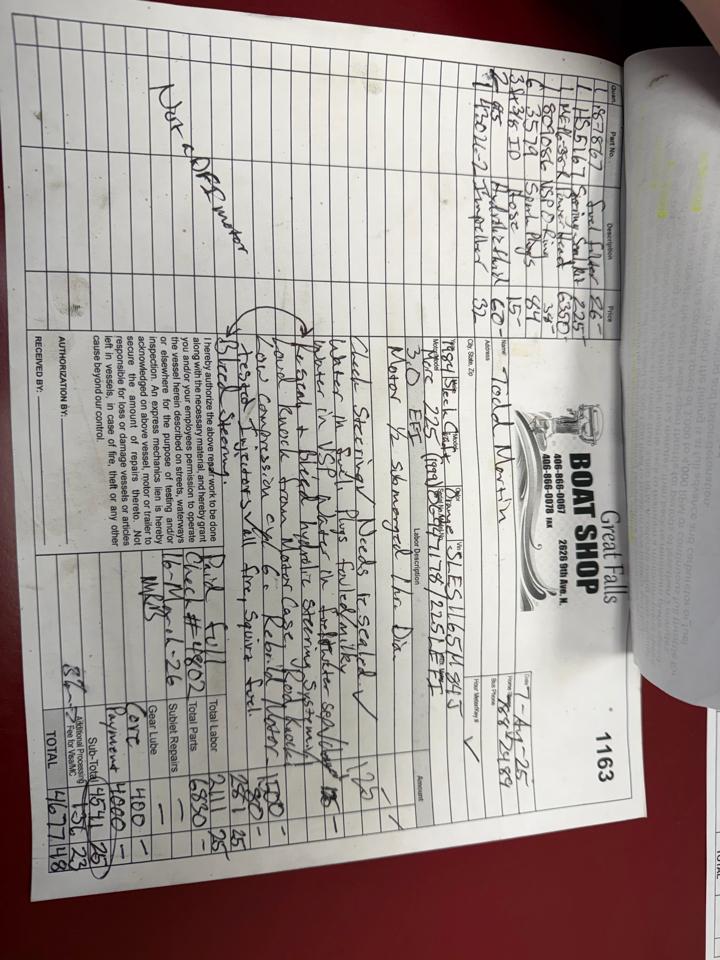 1163
Great Falls
BOAT SHOP
406-866-0067 2626 9th Ave. N.
406-866-0078 FAX
Date 7-Aug-25
Name Todd Martin
Home
2489
Address
Bus Phone
City, State, Zip
Hour Meter/Key #
1984 Orange
Merc 225 (1999)
3.0 EFI
Motor 1/2 submerged 1 hr
Quan. Part No. Description Price
1 18-7867 Fuel filter 26-
1 HS5167 Steering Seal Kit 225-
1 Power Head 6350
1 809086 VSP O Ring
6 3579 Spark Plugs 84
3 ft 3/8 ID Hose 15-
2 Hydrolic fluid 60-
1 43026-2 Impeller 32
Not a DFI motor
Labor Description Amount
Check Steering Needs resealed
Water in fuel Plugs fouled/milky
Water in VSP Water in
Reseal & bleed hydrolic Steering System
Loud knock from Motor case, Rod knock
Low compression cyl 6. Rebuild Motor 1500-
Tested Injectors all fire, squirt fuel. 281 25
Bleed Steering.
I hereby authorize the above repair work to be done
along with the necessary material, and hereby grant
you and/or your employees permission to operate
the vessel herein described on streets, waterways
or elsewhere for the purpose of testing and/or
inspection. An express mechanics lien is hereby
acknowledged on above vessel, motor or trailer to
secure the amount of repairs thereto. Not
responsible for loss or damage vessels or articles
left in vessels, in case of fire, theft or any other
cause beyond our control.
AUTHORIZATION BY:
RECEIVED BY:
Paid full
Check # 4802
6-March-26
Total Labor 2111 25
Total Parts 6830 -
Sublet Repairs -
Gear Lube -
Core 400 -
Payment 4000 -
Sub-Total 4541 25
Additional Processing Fee for Visa/MC 156 23
TOTAL 4697 48